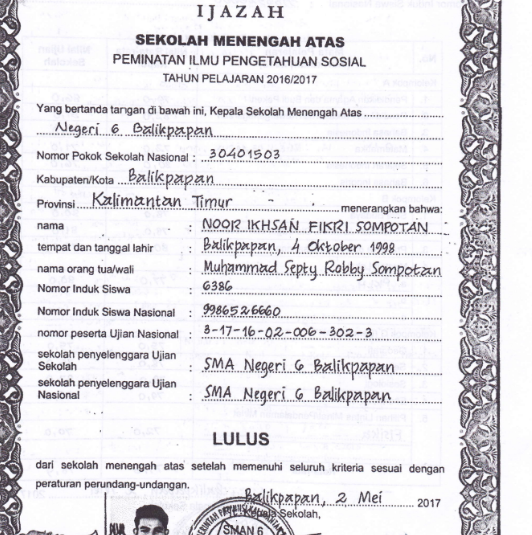 IJAZAH
SEKOLAH MENENGAH ATAS
PEMINATAN ILMU PENGETAHUAN SOSIAL
TAHUN PELAJARAN 2016/2017
Yang bertanda tangan di bawah ini, Kepala Sekolah Menengah Atas
Negeri 6 Balikpapan
Nomor Pokok Sekolah Nasional : 30401503
Kabupaten/Kota Balikpapan
Provinsi Kalimantan Timur menerangkan bahwa:
nama : NOOR IKHSAN FIKRI SOMPOTAN
tempat dan tanggal lahir : Balikpapan, 4 Oktober 1998
nama orang tua/wali : Muhammad Septy Robby Sompotan
Nomor Induk Siswa : 6386
Nomor Induk Siswa Nasional : 9986526660
nomor peserta Ujian Nasional : 3-17-16-02-006-302-3
sekolah penyelenggara Ujian
Sekolah : SMA Negeri 6 Balikpapan
sekolah penyelenggara Ujian
Nasional : SMA Negeri 6 Balikpapan
LULUS
dari sekolah menengah atas setelah memenuhi seluruh kriteria sesuai dengan
peraturan perundang-undangan.
Balikpapan, 2 Mei 2017
Kepala Sekolah,
SMAN 6